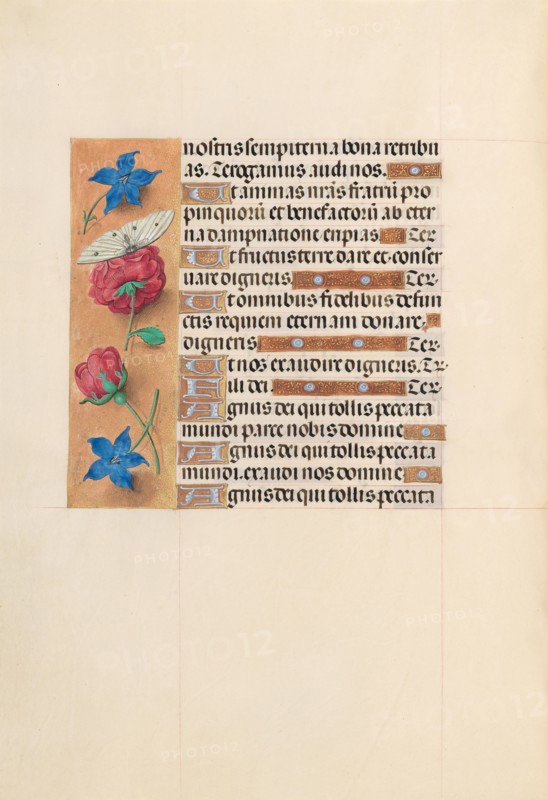 nostris sempiterna bona retribu
as. Te rogamus audi nos.
Ut animas nr̄as fratrū pro
pinquorū et benefactorū ab eter
na dampnatione eripias Te r
Ut fructus terre dare et conser
uare digneris Te r.
Ut omnibus fidelibus defun
ctis requiem eternam donare.
digneris Te r.
Ut nos exaudire digneris. Te r.
Fili dei. Te r.
Agnus dei qui tollis peccata
mundi parce nobis domine
Agnus dei qui tollis peccata
mundi. exaudi nos domine
Agnus dei qui tollis peccata
PHOTO12
PHOTO12
PHOTO12
PHOTO12
PHOTO12
PHOTO12